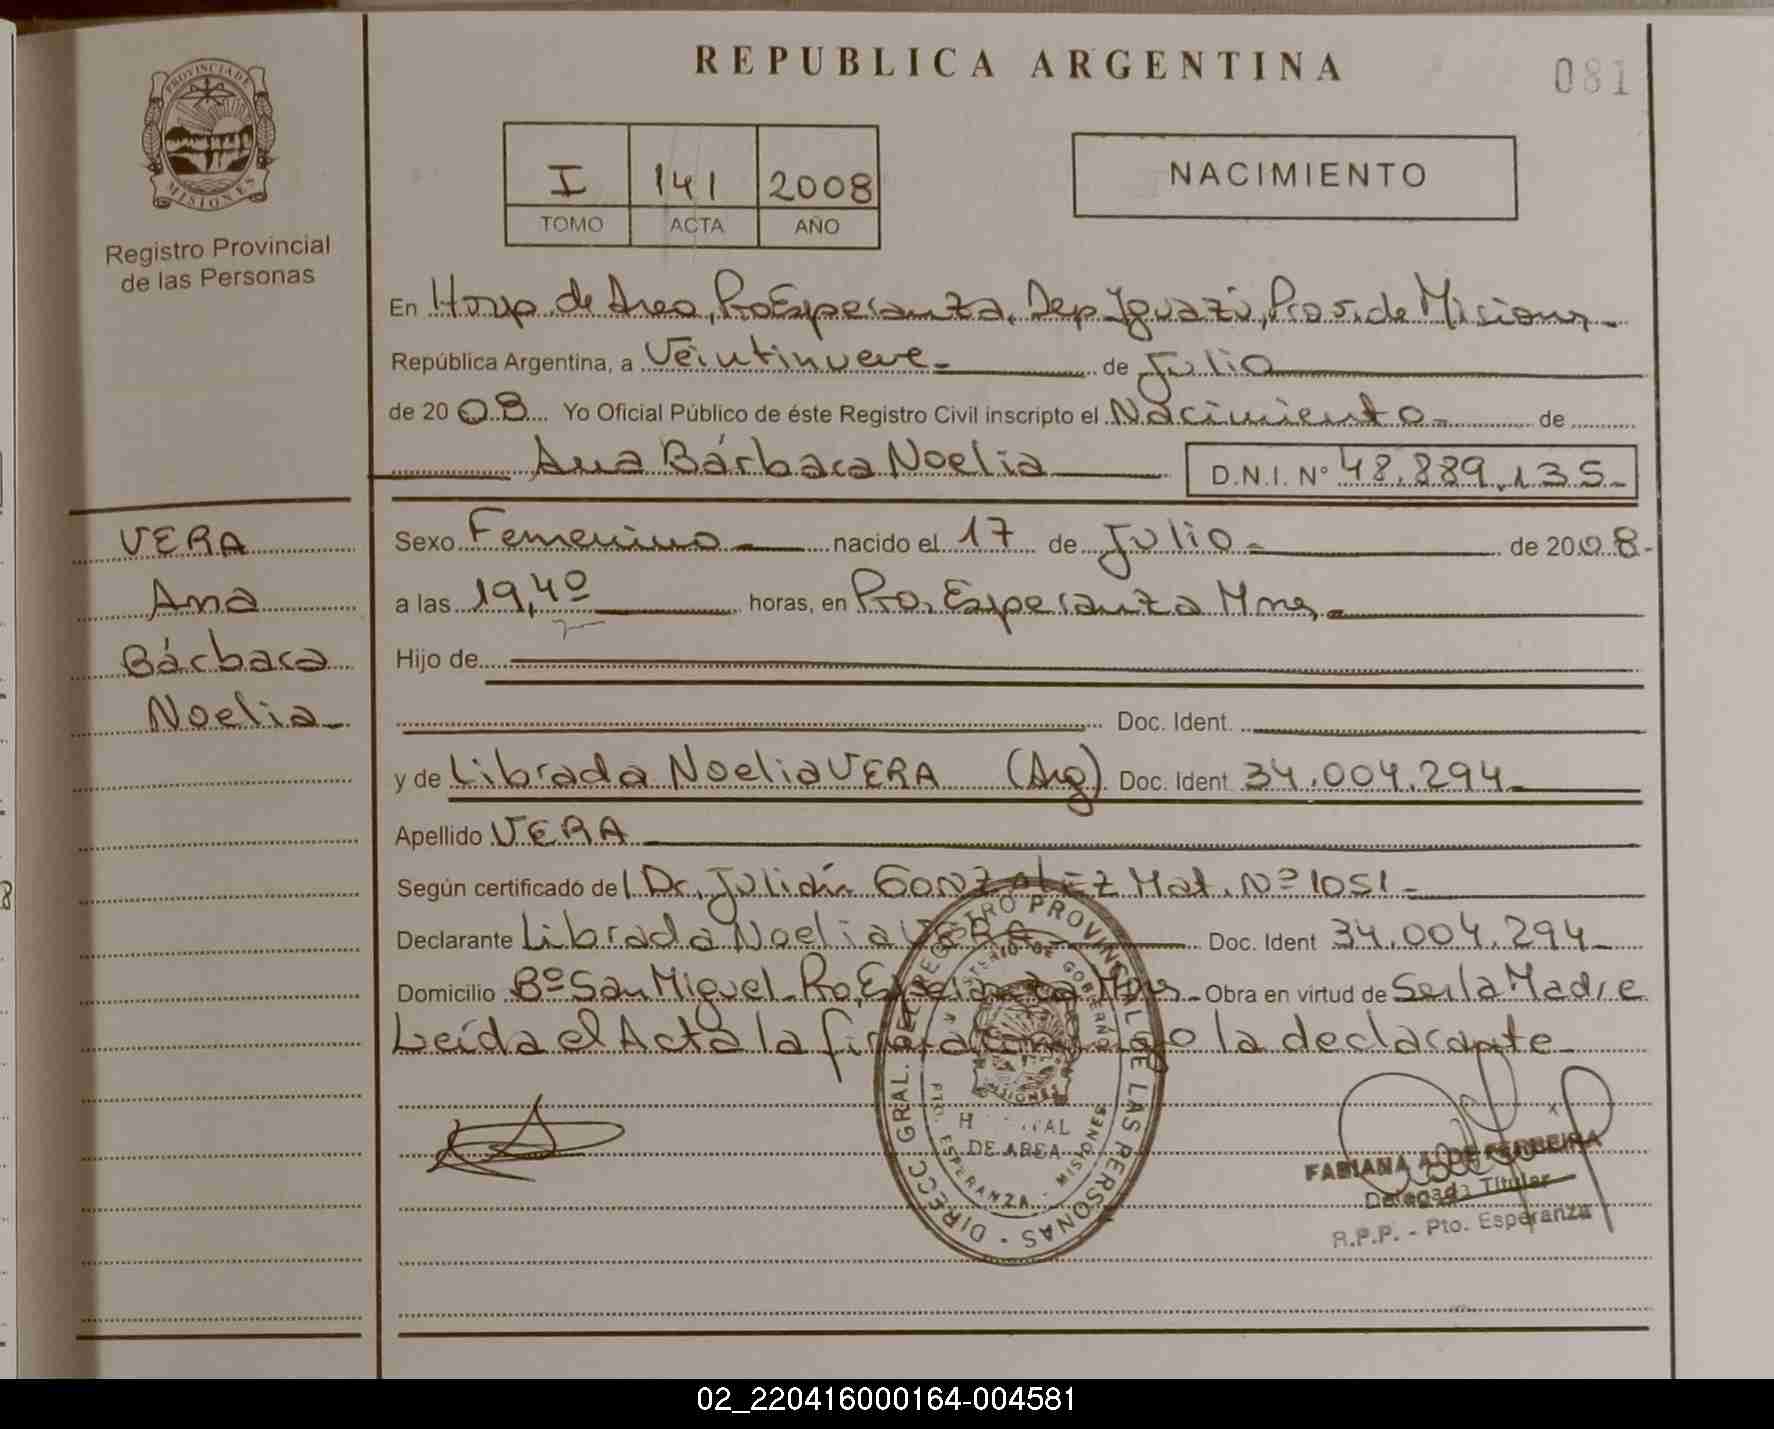 REPUBLICA ARGENTINA
081
PROVINCIA DE MISIONES
Registro Provincial
de las Personas
I 141 2008
TOMO ACTA AÑO
NACIMIENTO
En Hosp. de Area, Pto Esperanza, Dep Iguazú, Prov. de Misiones
República Argentina, a Veintinueve de Julio
de 2008 Yo Oficial Público de éste Registro Civil inscripto el Nacimiento de
Ana Bárbara Noelia D.N.I. N° 48.889.135
VERA
Ana
Bárbara
Noelia
Sexo Femenino nacido el 17 de Julio de 2008
a las 19,40 horas, en Pto. Esperanza Mnes
Hijo de
Doc. Ident.
y de Librada Noelia VERA (Arg) Doc. Ident 34.004.294
Apellido VERA
Según certificado del Dr. Julián GONZALEZ Mat. Nº 1051
Declarante Librada Noelia VERA Doc. Ident 34.004.294
Domicilio Bº San Miguel Pto Esperanza Mnes Obra en virtud de Ser la Madre
Leída el Acta la firma conmigo la declarante
DIRECC GRAL. DEL REGISTRO PROVINCIAL DE LAS PERSONAS
MINISTERIO DE GOBIERNO
MISIONES
DE AREA
PTO. ESPERANZA - MISIONES
FABIANA A. DE FERREIRA
Delegada Titular
R.P.P. - Pto. Esperanza
02_220416000164-004581